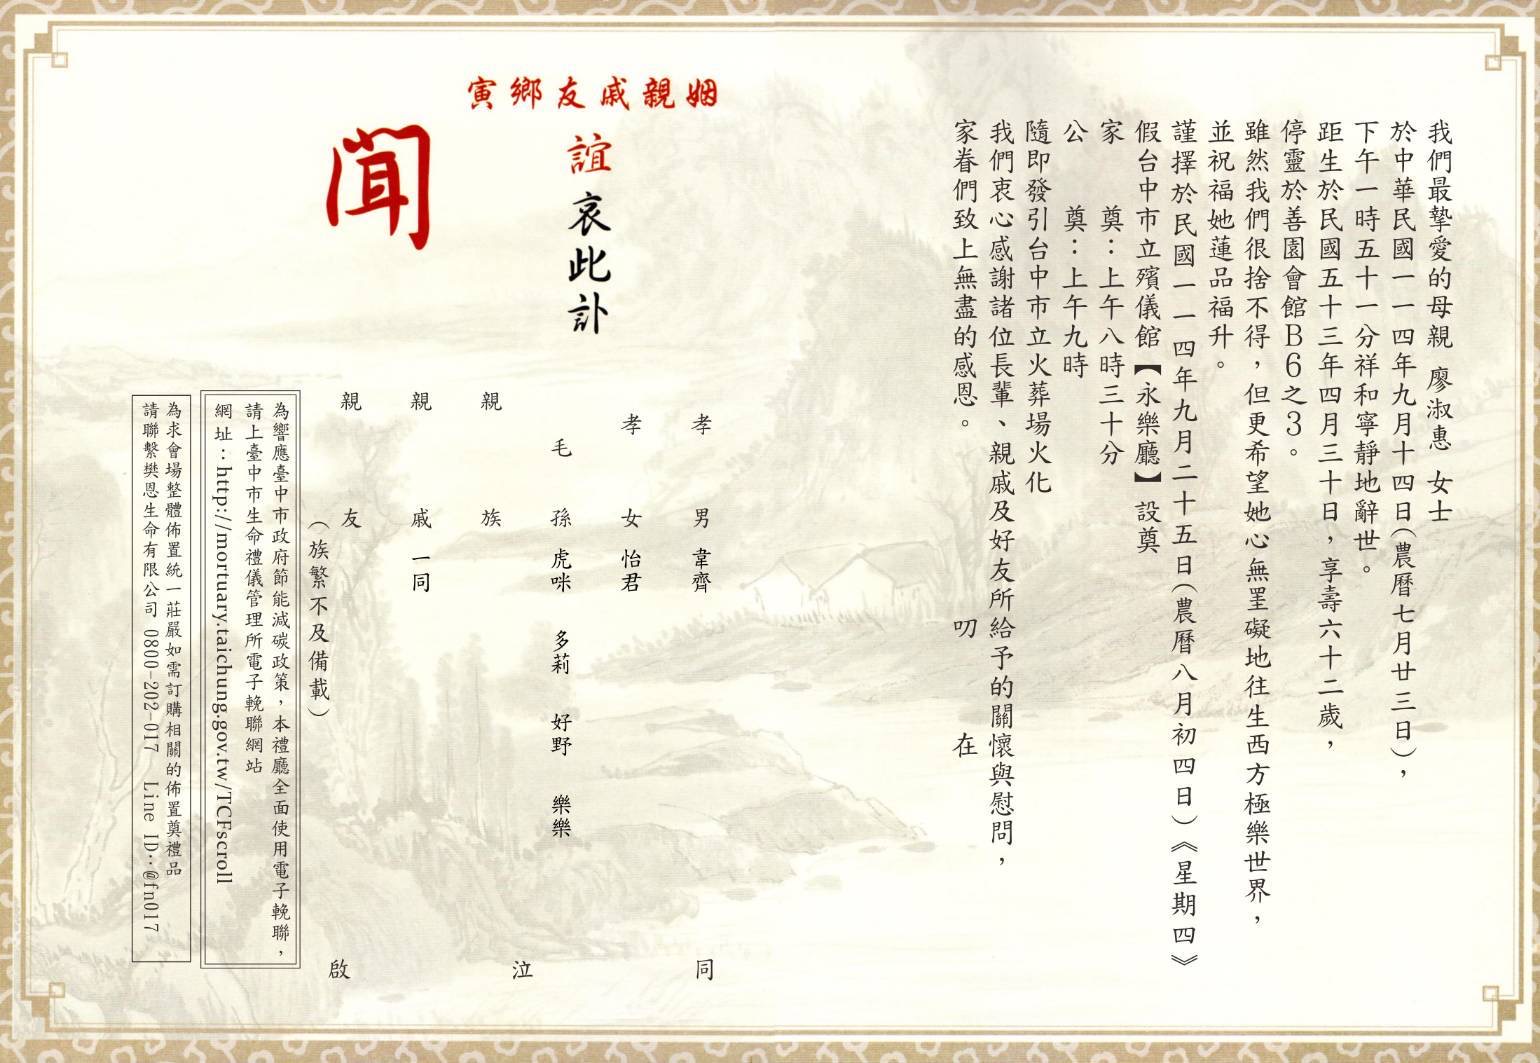 我們最摯愛的母親 廖淑惠 女士
於中華民國一一四年九月十四日(農曆七月廿三日)，
下午一時五十一分祥和寧靜地辭世。
距生於民國五十三年四月三十日，享壽六十二歲，
停靈於善園會館B6之3。
雖然我們很捨不得，但更希望她心無罣礙地往生西方極樂世界，
並祝福她蓮品福升。
謹擇於民國一一四年九月二十五日(農曆八月初四日)《星期四》
假台中市立殯儀館【永樂廳】設奠
家 奠：上午八時三十分
公 奠：上午九時
隨即發引台中市立火葬場火化
我們衷心感謝諸位長輩、親戚及好友所給予的關懷與慰問，
家眷們致上無盡的感恩。 叨 在
寅鄉友戚親姻
誼哀此訃
聞
孝 男 韋齊
孝 女 怡君
毛 孫 虎咪 多莉 好野 樂樂
親 族
親 戚 一同
親 友
(族繁不及備載)
同 泣 啟
為響應臺中市政府節能減碳政策，本禮廳全面使用電子輓聯，
請上臺中市生命禮儀管理所電子輓聯網站
網址：http://mortuary.taichung.gov.tw/TCFscroll
為求會場整體佈置統一莊嚴如需訂購相關的佈置奠禮品
請聯繫樊恩生命有限公司 0800-202-017 Line ID:@fn017